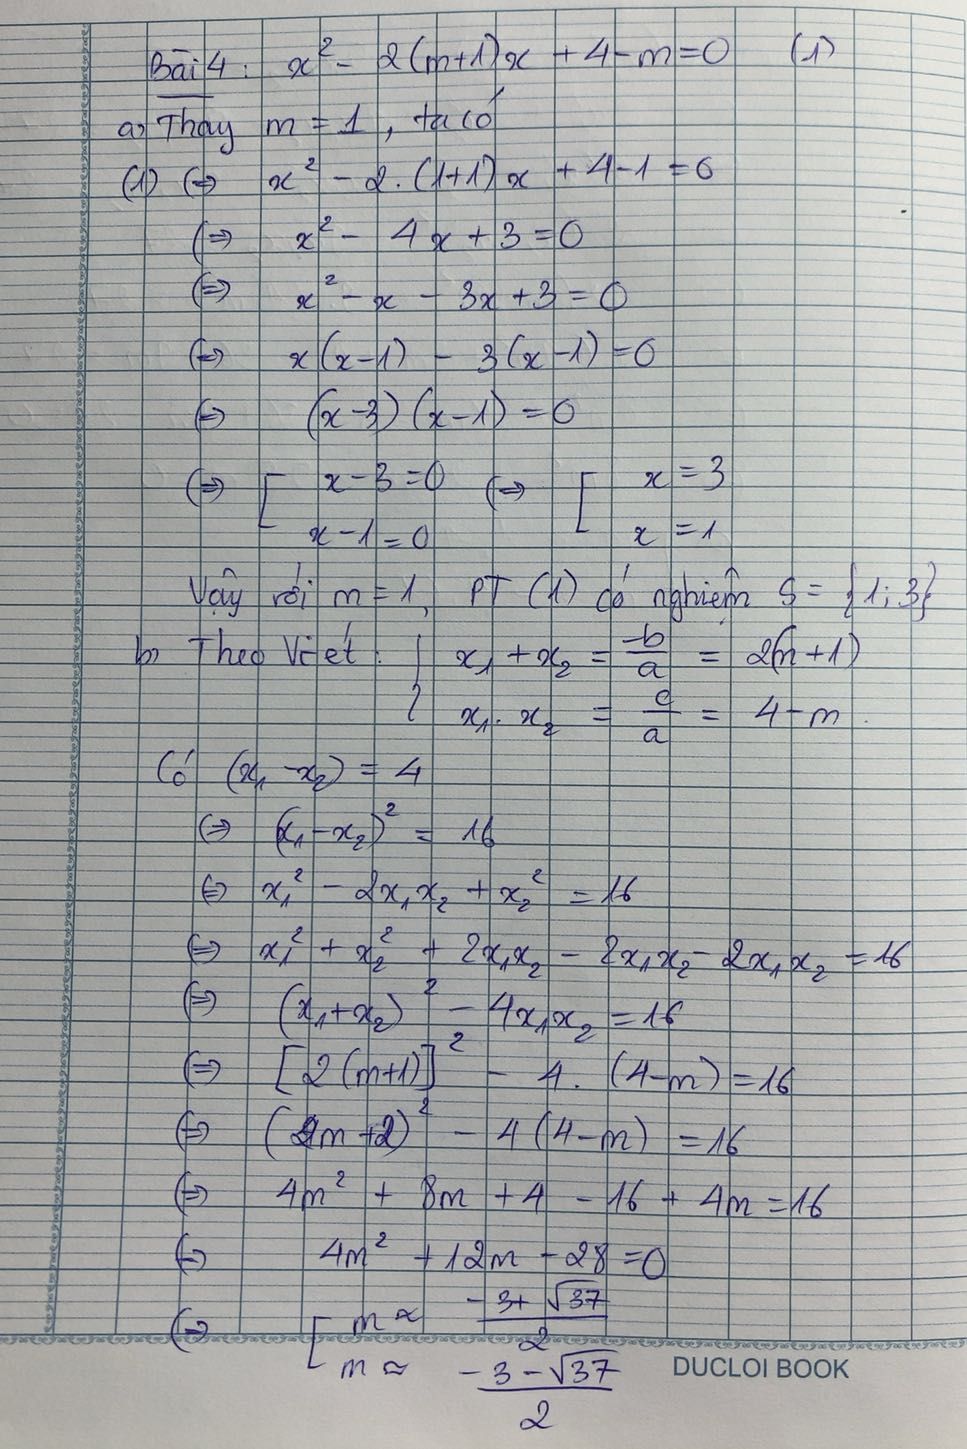 Bài 4 : x² - 2(m+1)x + 4-m = 0 (1)
a, Thay m = 1 , ta có
(1) ⇔ x² - 2.(1+1)x + 4-1 = 0
⇔ x² - 4x + 3 = 0
⇔ x² - x - 3x + 3 = 0
⇔ x(x-1) - 3(x-1) = 0
⇔ (x-3)(x-1) = 0
⇔ [ x-3 = 0 ⇔ [ x = 3
x-1 = 0 x = 1
Vậy với m = 1, PT (1) có nghiệm S = {1; 3}
b, Theo Viét : { x₁ + x₂ = -b/a = 2(m+1)
x₁ . x₂ = c/a = 4-m .
Có (x₁ - x₂) = 4
⇔ (x₁ - x₂)² = 16
⇔ x₁² - 2x₁x₂ + x₂² = 16
⇔ x₁² + x₂² + 2x₁x₂ - 2x₁x₂ - 2x₁x₂ = 16
⇔ (x₁+x₂)² - 4x₁x₂ = 16
⇔ [2(m+1)]² - 4. (4-m) = 16
⇔ (2m+2)² - 4(4-m) = 16
⇔ 4m² + 8m + 4 - 16 + 4m = 16
⇔ 4m² + 12m - 28 = 0
⇔ [ m ≈ (-3+√37)/2
m ≈ (-3-√37)/2
DUCLOI BOOK